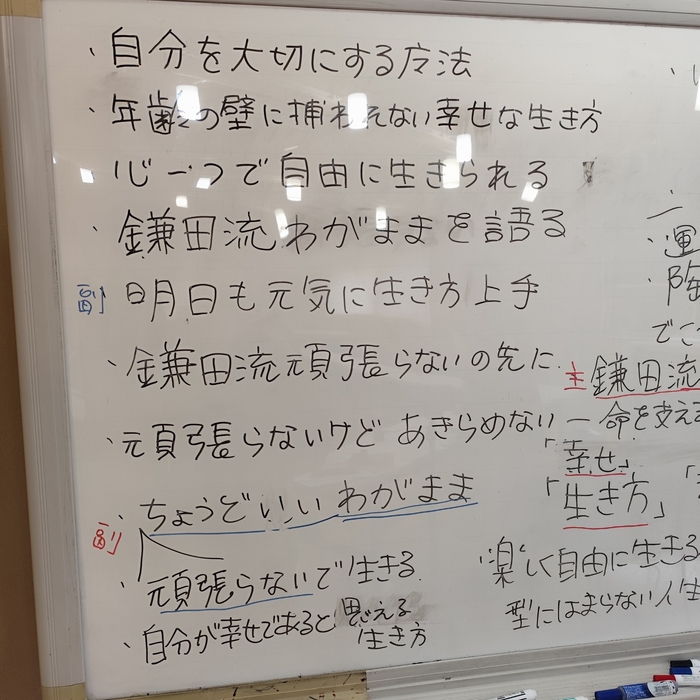 ・自分を大切にする方法
・年齢の壁に捕われない幸せな生き方
・心一つで自由に生きられる
・鎌田流わがままを語る
副 明日も元気に生き方上手
・鎌田流頑張らないの先に
・頑張らないけど あきらめない
・ちょうどいい わがまま
副
・頑張らないで生きる
・自分が幸せであると思える
生き方
・運
・陸
でこ
主 鎌田流
一命を支え
「幸せ」
「生き方」
・楽しく自由に生きる
型にはまらない人生